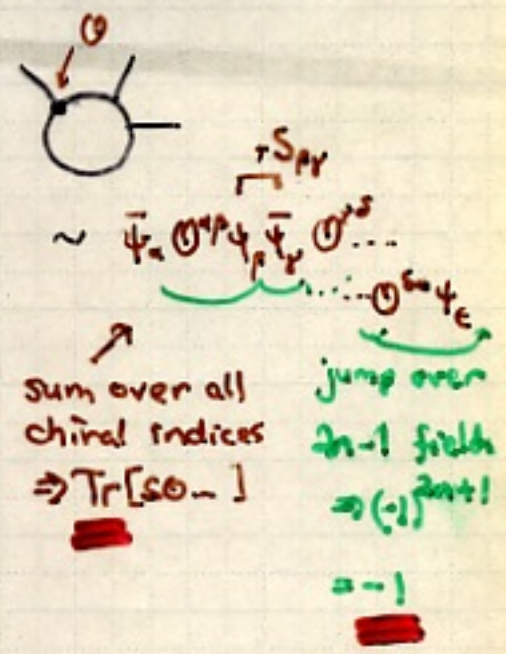 O
+S_{βγ}
~ ψ̄_α O^{αβ} ψ_β ψ̄_γ O^{γδ} ....
....O ψ_ε
sum over all
chiral indices
⇒ Tr[SO... ]
jump over
2n-1 fields
⇒ (-1)^{2n+1}
= -1